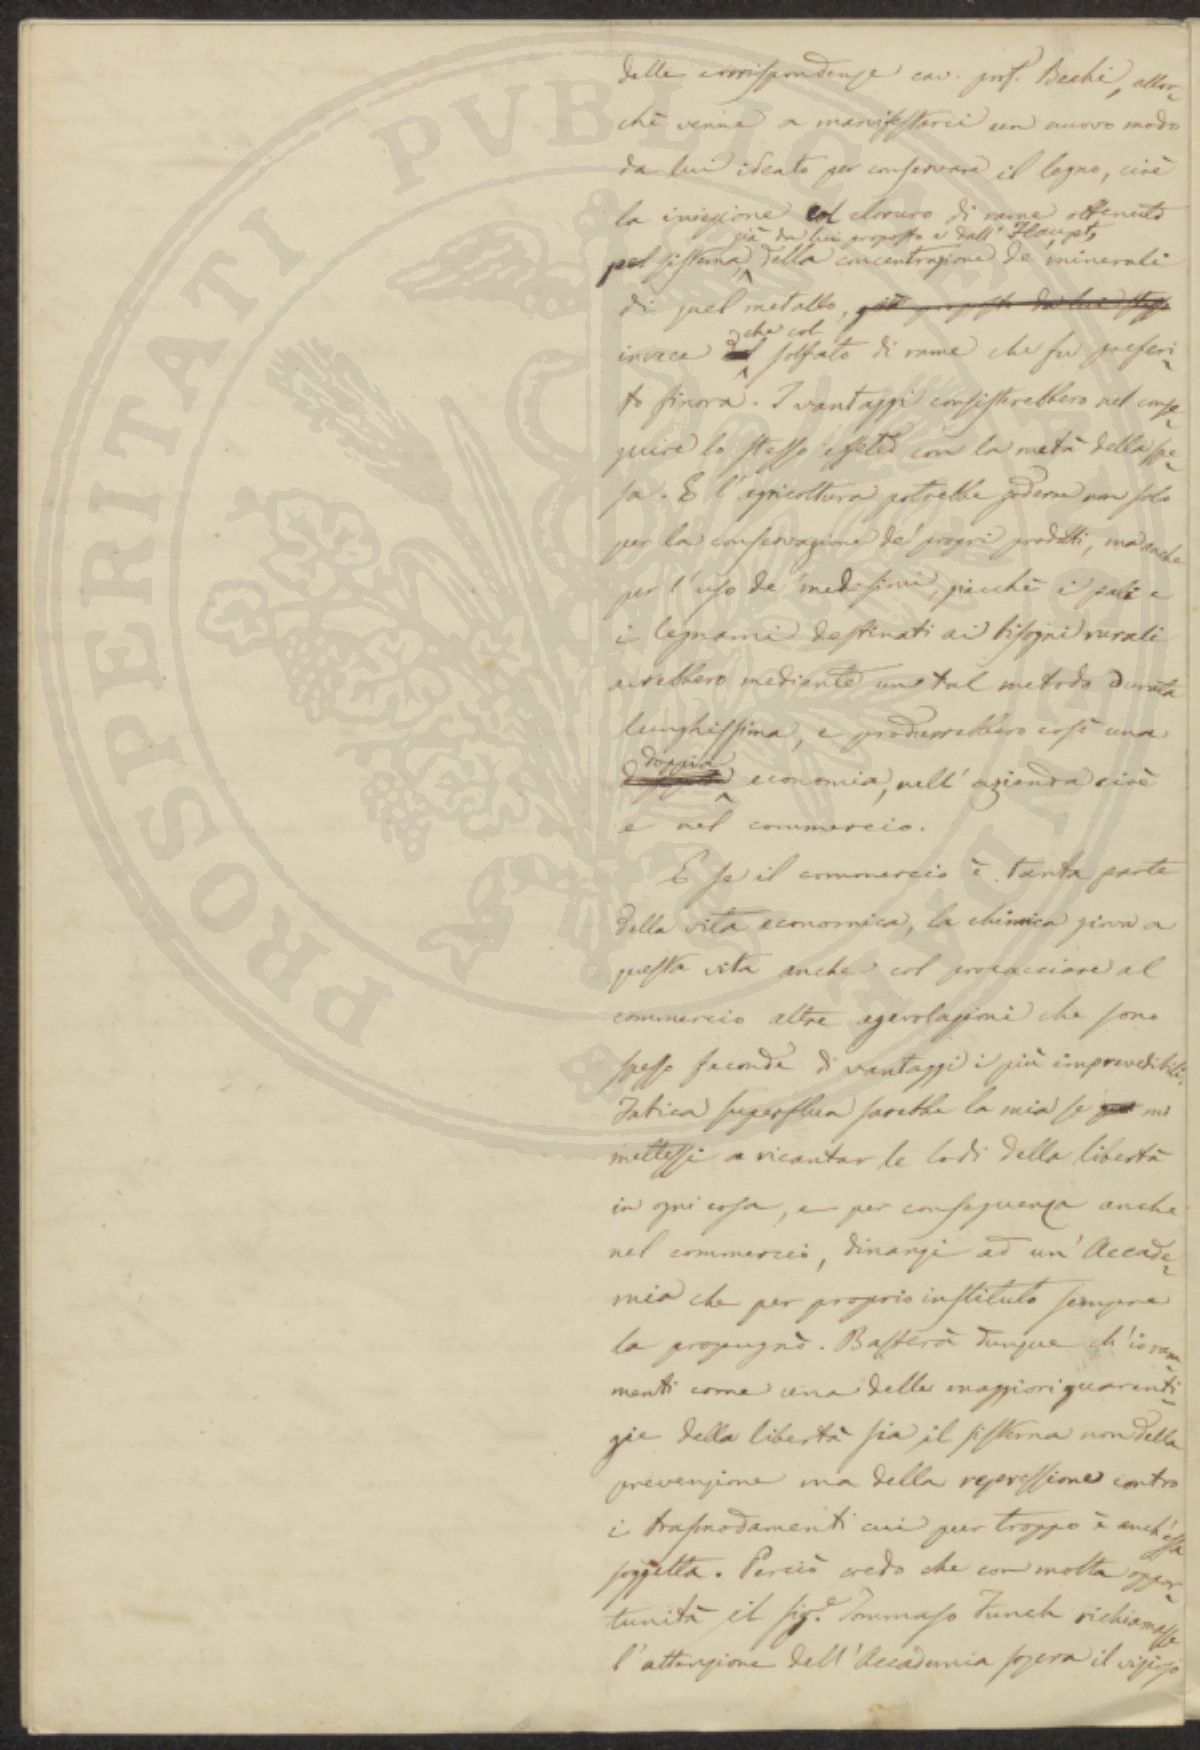 PROSPERITATI PUBLICAE AUGENDAE
delle corrispondenze cav. prof. Bechi, allor-
chè venne a manifestarci un nuovo modo
da lui ideato per conservare il legno, cioè
la iniezione col cloruro di rame ottenuto
già da lui proposto e dall' Haupt,
pel sistema, della concentrazione de' minerali
di quel metallo, già proposto da lui stesso
che col
invece del solfato di rame che fu preferi-
to finora. I vantaggi consisterebbero nel conse-
guire lo stesso effetto con la metà della spe-
sa. E l'agricoltura potrebbe goderne non solo
per la conservazione de' propri prodotti, ma anche
per l'uso de' medesimi, giacchè i pali e
i legnami destinati ai bisogni rurali
avrebbero mediante un tal metodo durata
lunghissima, e produrrebbero così una
doppia
economia, nell' azienda cioè
e nel commercio.
E se il commercio è tanta parte
della vita economica, la chimica giova a
questa vita anche col procacciare al
commercio altre agevolazioni che sono
spesso feconde di vantaggi i più imprevedibili.
Fatica superflua sarebbe la mia se mi
mettessi a ricantar le lodi della libertà
in ogni cosa, e per conseguenza anche
nel commercio, dinanzi ad un' Accade-
mia che per proprio instituto sempre
la propugnò. Basterà dunque ch' io ram-
menti come una delle maggiori guarenti-
gie della libertà sia il sistema non della
prevenzione ma della repressione contro
i trasmodamenti cui pur troppo è anch' essa
soggetta. Perciò credo che con molta oppor-
tunità il sig.e Tommaso Funch richiamasse
l'attenzione dell' Accademia sopra il vizioso